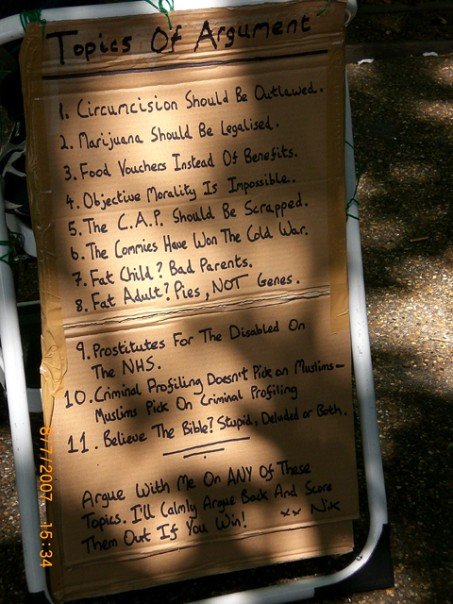 Topics Of Argument
1. Circumcision Should Be Outlawed.
2. Marijuana Should Be Legalised.
3. Food Vouchers Instead Of Benefits.
4. Objective Morality Is Impossible.
5. The C.A.P. Should Be Scrapped.
6. The Commies Have Won The Cold War.
7. Fat Child? Bad Parents.
8. Fat Adult? Pies, NOT Genes.
9. Prostitutes For The Disabled On
The NHS.
10. Criminal Profiling Doesn't Pick on Muslims –
Muslims Pick On Criminal Profiling
11. Believe The Bible? Stupid, Deluded or Both.
Argue With Me On ANY Of These
Topics. I'll Calmly Argue Back And Score
Them Out If You Win! xx Nik
6/7/2007 15:34